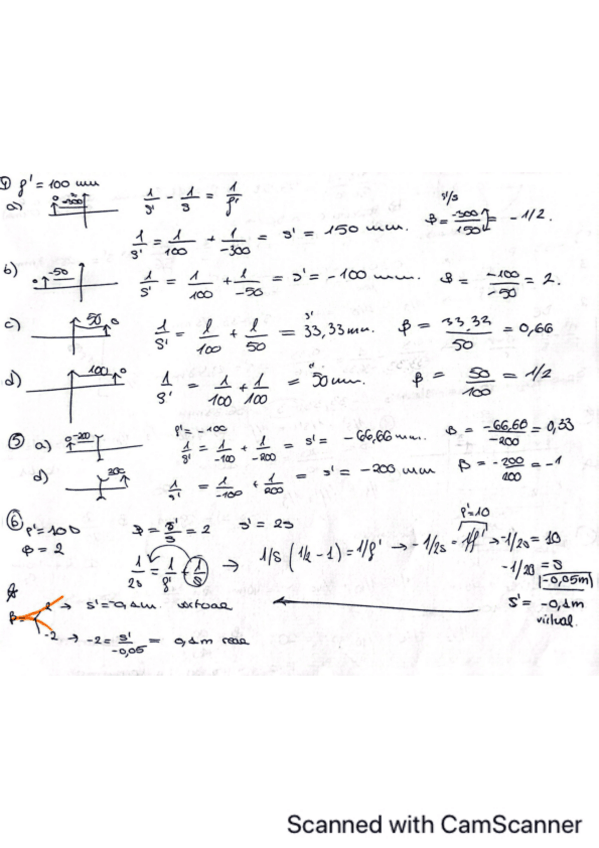 4) f' = 100 mm
a) 0 -300
1/s' - 1/s = 1/f'
s'/s
1/s' = 1/100 + 1/-300 = s' = 150 mm.
β = -300/150 = -1/2.
b) 0 -50 1/s' = 1/100 + 1/-50 = s' = -100 mm. β = -100/-50 = 2.
c) 50 0 1/s' = 1/100 + 1/50 = s' 33,33 mm. β = 33,33/50 = 0,66
d) 100 0 1/s' = 1/100 + 1/100 = "50 mm. β = 50/100 = 1/2
f' = -100
5) a) 0 -200 1/s' = 1/-100 + 1/-200 = s' = -66,66 mm. β = -66,66/-200 = 0,33
d) 200 1/s' = 1/-100 + 1/200 = s' = -200 mm β = -200/200 = -1
6) P' = 10D β = s'/s = 2 s' = 2s
β = 2
P' = 10
1/2s = 1/f' + 1/s → 1/s (1/2 - 1) = 1/f' → -1/2s = 1/f' → -1/2s = 10
-1/20 = s
-0,05m
2 → s' = 0,1m. virtual
s' = -0,1m
virtual.
β -2 → -2 = s'/-0,05 = 0,1m real
Scanned with CamScanner